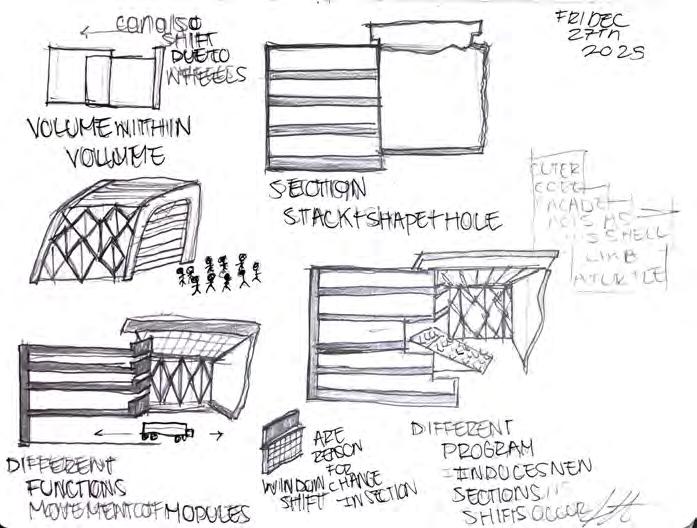 can also
SHIFT
DUE TO
WHEELS
FRI DEC
27TH
2025
VOLUME WITHIN
VOLUME
SECTION
STACK + SHAPE + HOLE
FACADE
SHELL
DIFFERENT
FUNCTIONS
MOVEMENT OF MODULES
ARE
REASON
FOR
WINDOW CHANGE
SHIFT IN SECTION
DIFFERENT
PROGRAM
INDUCES NEW
SECTIONS
SHIFTS OCCUR